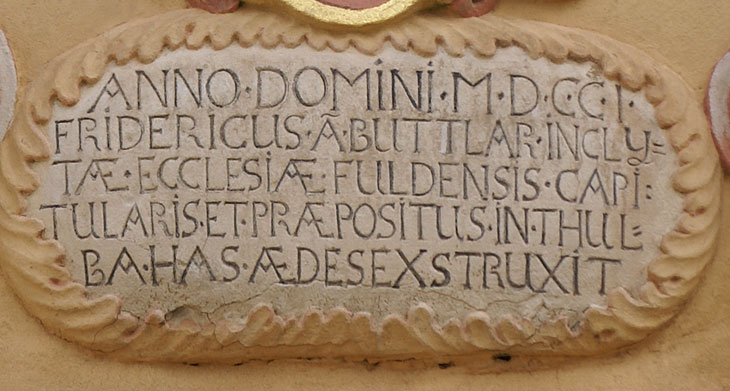 ANNO·DOMINI·M·D·CC·I·
FRIDERICUS·Ã·BUTTLAR·INCLY=
TÆ·ECCLESIÆ·FULDENSIS·CAPI:
TULARIS·ET·PRÆPOSITUS·IN·THUL=
BA·HAS·ÆDES EXSTRUXIT